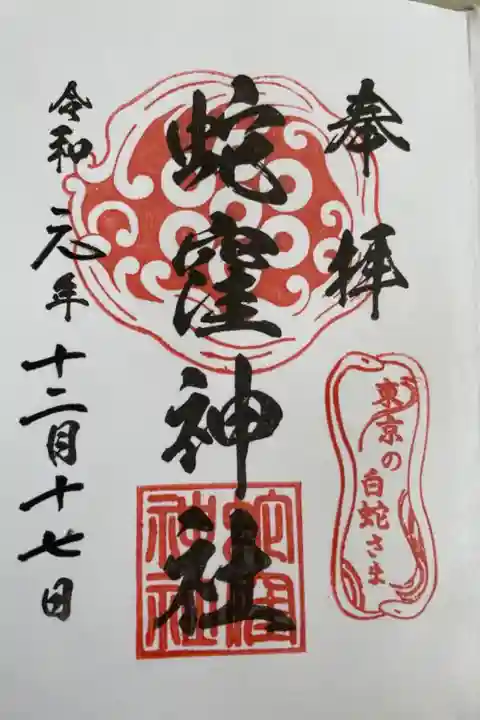 奉拝
東京の
白蛇さま
蛇窪神社
蛇窪
神社
令和元年十二月十七日